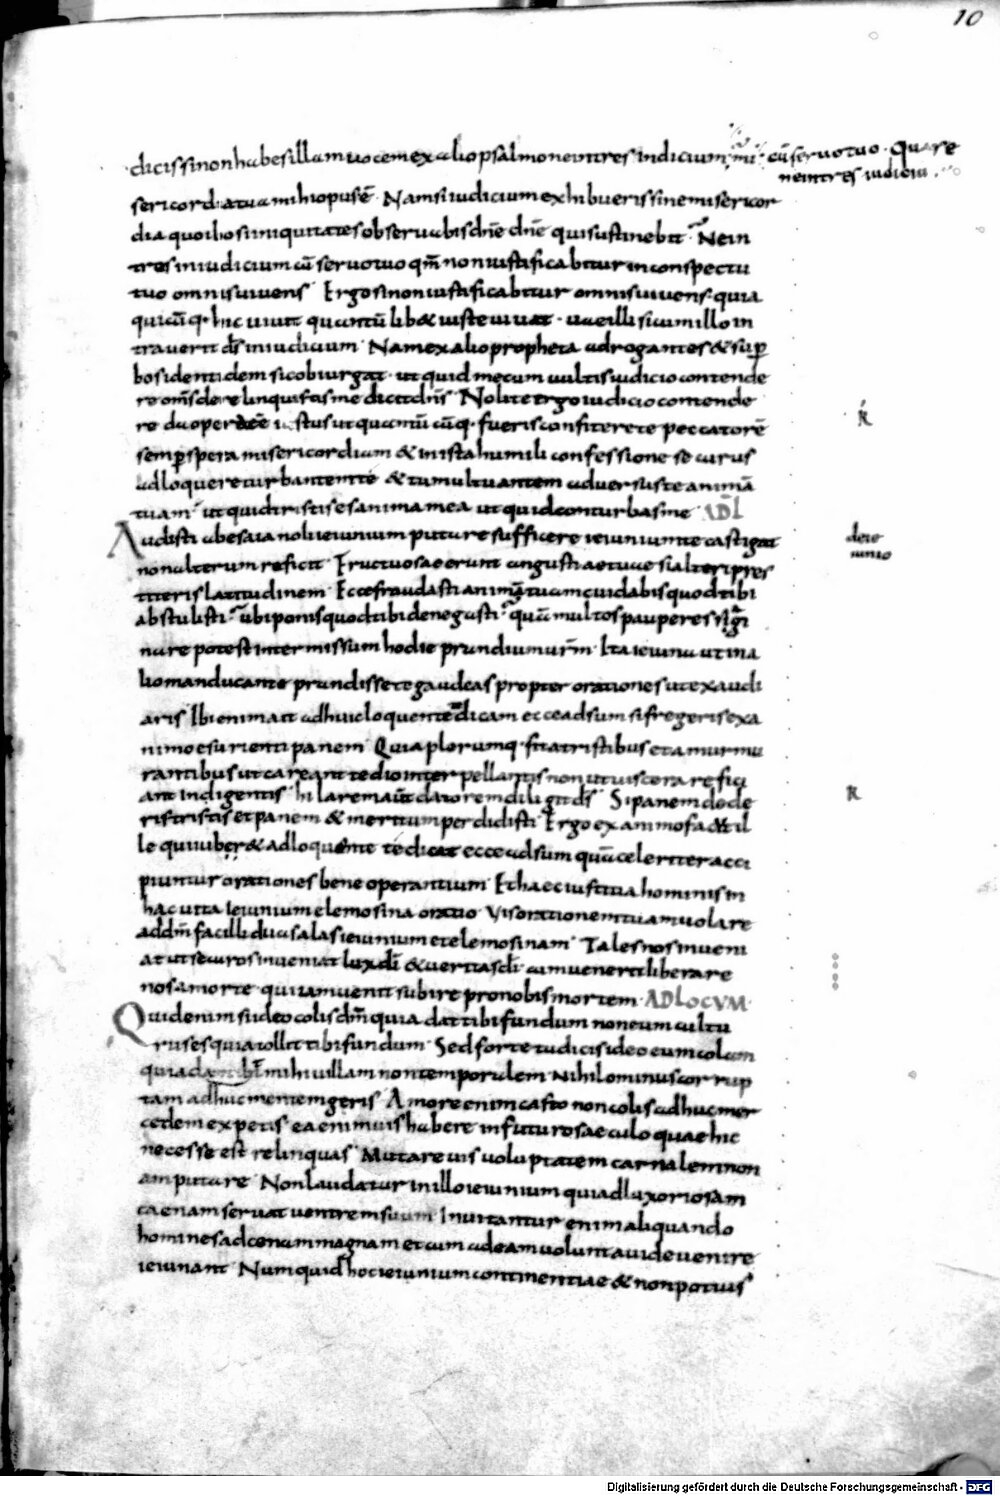 10
dicis si non habes illam uocem ex alio psalmo ne intres in dicium mi cū seruo tuo. Quare
ne intres iudiciū
sericordia tua mihi opus ē Nam si iudicium exhibueris sine misericor
dia quoībo si iniquitates obseruabis dn̄e dn̄e quis sustinebit Ne in
tres in iudicium cū seruo tuo qm̄ non iustificabitur in conspectu
tuo omnis uiuens Ergo si non iustificabitur omnis uiuens quia
quicūq· hic uiuit quantū lib& iuste uiuat · uae illi si cum illo in
trauerit ds̄ in iudicium Nam ex alio propheta adrogantes & sup̄
bos identidem sic obiurgat · ut quid mecum uultis iudicio contende
re om̄s dereliquistis me dicit dn̄s Nolite ergo iudicio contende
re da operā ēē iustus ut quantū cūq· fueris confitere te peccatorē
semp̄ spera misericordiam & in ista humili confessione securus
adloquere turbantem te & tumultuantem aduersus te animā
tuam ut quid tristis es anima mea ut quid conturbas me AD L
Audisti ab esaia noli ieiunium putare sufficere ieiunium te castigat
non alterum reficit Fructuosae erunt angustiae tuae si alteri pres
titeris latitudinem Ecce fraudasti animā tuam cui dabis quod tibi
abstulisti ubi ponis quod tibi denegasti quā multos pauperes sagi
nare potest intermissum hodie prandium urm̄ Ita ieiuna ut in a
lio manducante prandisse te gaudeas propter orationes ut exaudi
aris Ibi enim ait adhuc loquente te dicam ecce adsum si fregeris ex a
nimo esurienti panem Quia plerumq· fit a tristibus et a murmu
rantibus ut careant tedio interpellantis non ut uiscera refici
ant indigentis hilarem aut̄ datorem diligit ds̄ Si panem dede
ris tristis et panem & meritum perdidisti Ergo ex animo fac ut il
le qui iub& adloquente te dicat ecce adsum quā celeriter acci
piuntur orationes bene operantium Et haec iustitia hominis in
hac uita Ieiunium elemosina oratio Vis orationem tuam uolare
ad dm̄ fac illi duas alas ieiunium et elemosinam Tales nos inueni
at ut securos inueniat lux dī & ueritas dī cum uenerit liberare
nos a morte qui iam uenit subire pro nobis mortem AD LOCVM
Quid enim si ideo colis dm̄ quia dat tibi fundum non eum cultu
rus es quia tollit tibi fundum Sed forte tu dicis ideo eum colam
quia dat mihi uillam non temporalem Nihilominus corrup
tam adhuc mentem geris Amore enim casto non colis adhuc mer
cedem expetis ea enim uis habere in futuro saeculo quae hic
necesse est relinquas Mutare uis uoluptatem carnalem non
amputare Non laudatur in illo ieiunium qui ad luxoriosam
caenam seruat uentrem suum Inuitantur enim aliquando
homines ad cenam magnam et cum ad eam uolunt auide uenire
ieiunant Numquid hoc ieiunium continentiae & non potius
R
de ie
iunio
R
Digitalisierung gefördert durch die Deutsche Forschungsgemeinschaft - DFG